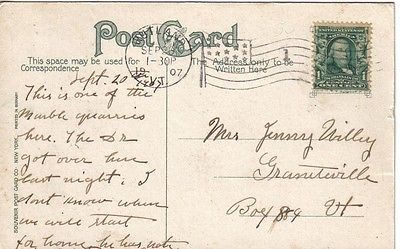 Post Card
RUTLAND
SEP 20
1-30P
19 07
VT.
This space may be used for
Correspondence
The Address only to be
Written Here
Sept. 20
This is one of the
Marble quarries
here. The Dr
got over here
last night, I
dont know when
we will start
for home, he has not
Mrs Jenny Willey
Graniteville
Box 89 Vt
1
SOUVENIR POST CARD CO. NEW YORK
PRINTED IN GERMANY